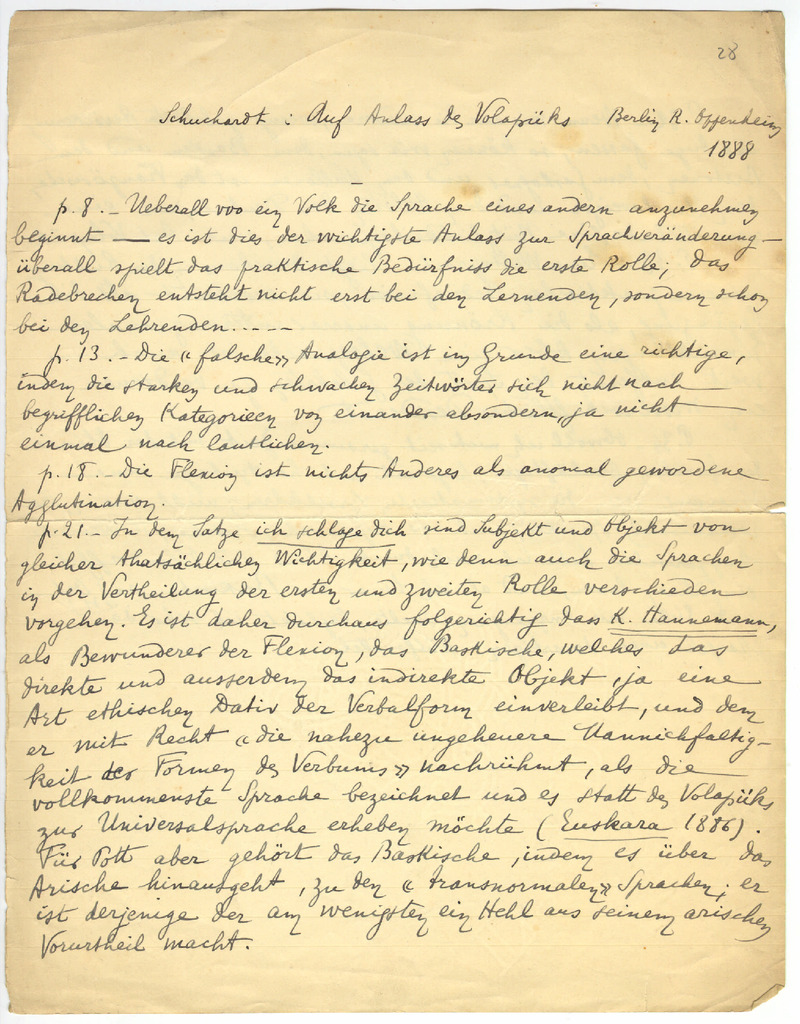 28
Schuchardt : Auf Anlass des Volapüks Berlin R. Oppenheim
1888
p. 8. — Ueberall wo ein Volk die Sprache eines andern anzunehmen
beginnt — es ist dies der wichtigste Anlass zur Sprachveränderung —
überall spielt das praktische Bedürfniss die erste Rolle; das
Radebrechen entsteht nicht erst bei den Lernenden, sondern schon
bei den Lehrenden.....
p. 13. — Die « falsche » Analogie ist im Grunde eine richtige,
indem die starken und schwachen Zeitwörter sich nicht nach
begrifflichen Kategorieen von einander absondern, ja nicht
einmal nach lautlichen.
p. 18. — Die Flexion ist nichts Anderes als anomal gewordene
Agglutination.
p. 21. — In dem Satze ich schlage dich sind Subjekt und Objekt von
gleicher thatsächlichen Wichtigkeit, wie denn auch die Sprachen
in der Vertheilung der ersten und zweiten Rolle verschieden
vorgehen. Es ist daher durchaus folgerichtig dass K. Hannemann,
als Bewunderer der Flexion, das Baskische, welches das
direkte und ausserdem das indirekte Objekt, ja eine
Art ethischen Dativ der Verbalform einverleibt, und dem
er mit Recht « die nahezu ungeheuere Mannichfaltig-
keit der Formen des Verbums » nachrühmt, als die
vollkommenste Sprache bezeichnet und es statt des Volapüks
zur Universalsprache erheben möchte (Euskara 1886).
Für Pott aber gehört das Baskische, indem es über das
Arische hinausgeht, zu den « transnormalen » Sprachen; er
ist derjenige der am wenigsten ein Hehl aus seinem arischen
Vorurtheil macht.